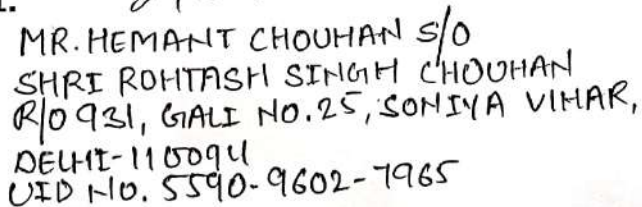 MR. HEMANT CHOUHAN S/O
SHRI ROHTASH SINGH CHOUHAN
R/O 931, GALI NO. 25, SONIYA VIHAR,
DELHI-110094
UID NO. 5590-9602-7965